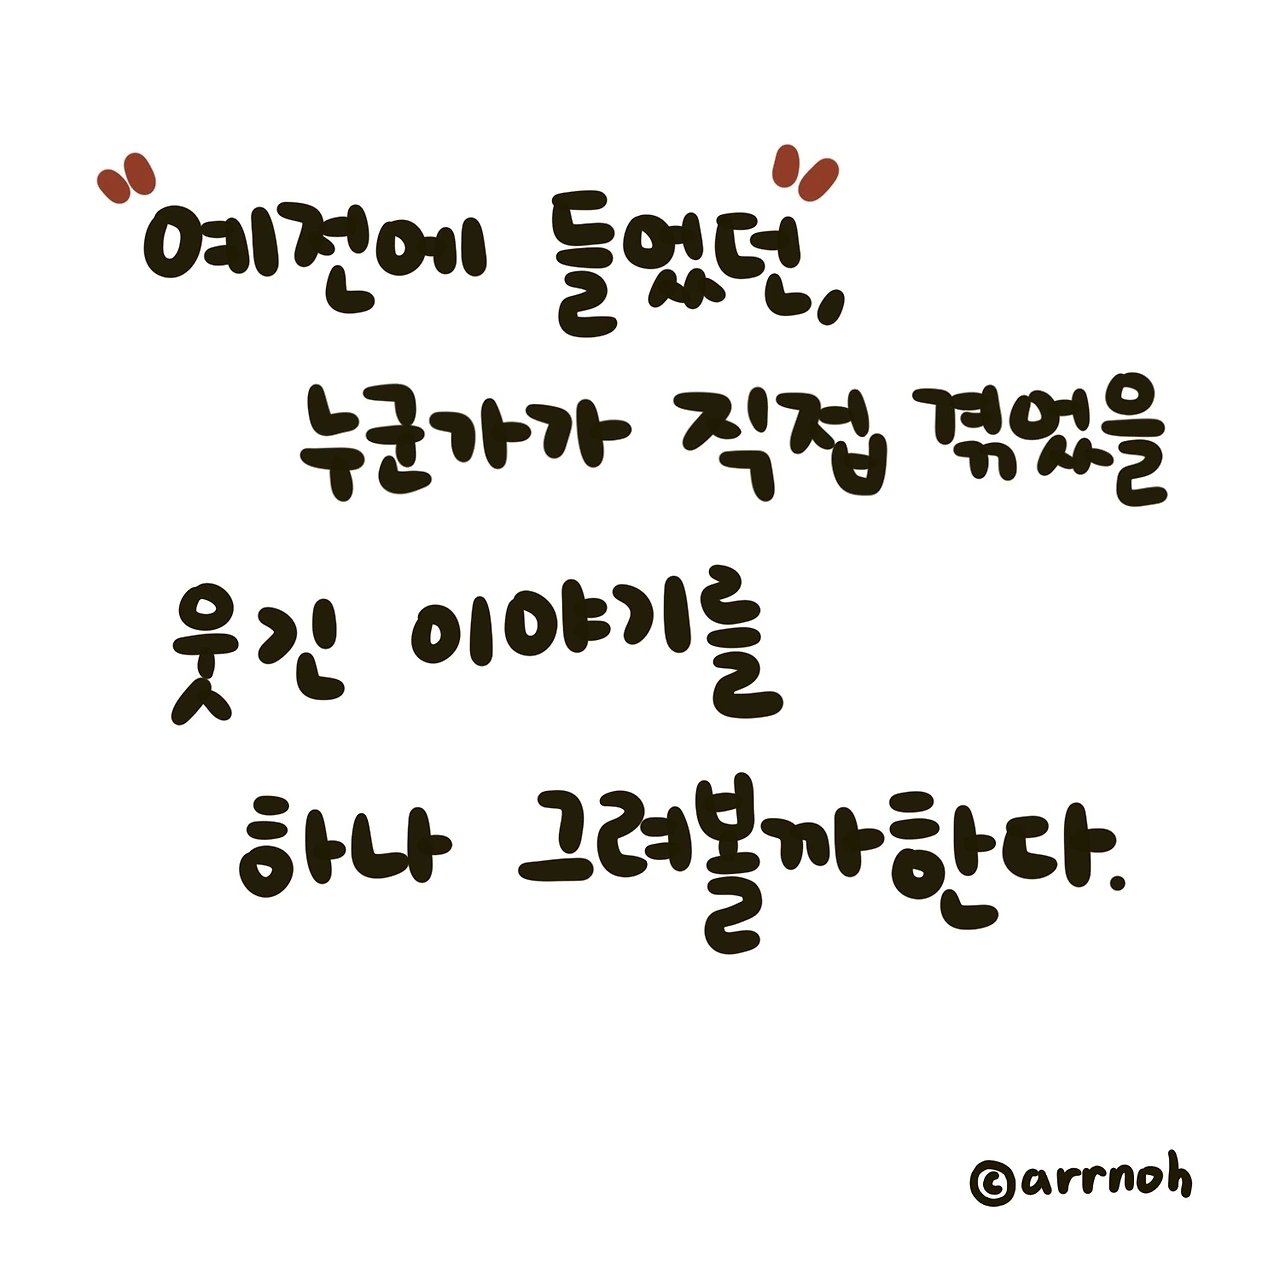 예전에 들었던,
누군가가 직접 겪었을
웃긴 이야기를
하나 그려볼까한다.
©arrnoh